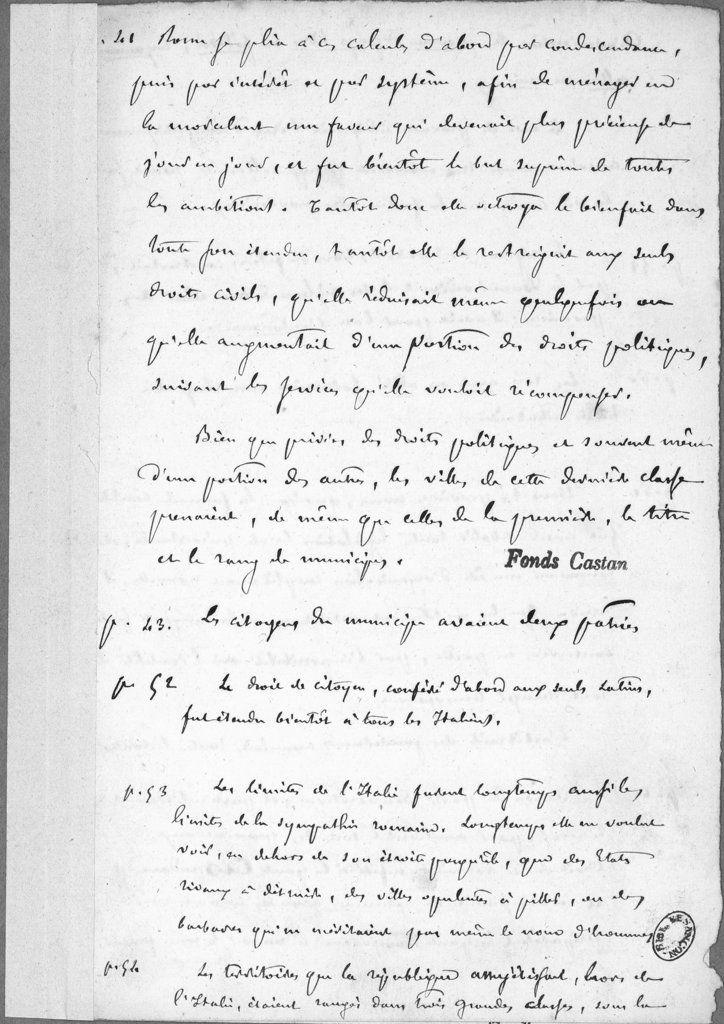 . 41 Rome se plia à ces calculs d'abord par condescendance,
puis par intérêt et par système, afin de ménager en
la morcelant une faveur qui devenait plus précieuse de
jour en jour, et fut bientôt le but suprême de toutes
les ambitions. Tantôt donc elle octroya le bienfait dans
toute son étendue, tantôt elle le restreignit aux seuls
droits civils, qu'elle réduisait même quelquefois ou
qu'elle augmentait d'une portion des droits politiques,
suivant les services qu'elle voulait récompenser.
Bien que privées des droits politiques et souvent même
d'une portion des autres, les villes de cette dernière classe
prenaient, de même que celles de la première, le titre
et le rang de municipes.
Fonds Castan
p. 43. Les citoyens du municipe avaient deux patries
p. 52 Le droit de citoyen, conféré d'abord aux seuls Latins,
fut étendu bientôt à tous les Italiens.
p. 53 Les limites de l'Italie furent longtemps aussi les
limites de la sympathie romaine. Longtemps elle ne voulut
voir, en dehors de son étroite presqu'île, que des Etats
rivaux à détruire, des villes opulentes à piller, ou des
barbares qui ne méritaient pas même le nom d'hommes
p. 54 Les territoires que la république assujétissait, hors de
l'Italie, étaient rangés dans trois grandes classes, sous la